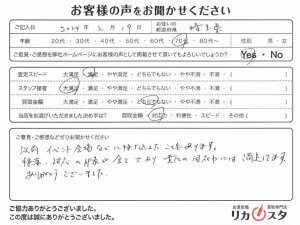 お客様の声をお聞かせください
ご記入日 2024年2月19日 お住いの都道府県 埼玉県
年齢 20代・30代・40代・50代・60代・70代・80代〜 性別 男・女
ご意見・ご感想などを弊社ホームページにお客様の声として掲載させて頂いてもよろしいでしょうか? Yes・No
査定スピード 大満足・満足・やや満足・どちらでもない・やや不満・不満・( )
スタッフ接客 大満足・満足・やや満足・どちらでもない・やや不満・不満・( )
買取金額 大満足・満足・やや満足・どちらでもない・やや不満・不満・( )
当店をお選びいただきました決め手は? 買取金額・対応力・利便性・スピード・その他( )
ご意見・ご感想などぜひお聞かせください。
以前イベント会場などに持ち込んだこともあります。
ありがとうございました。
ご協力ありがとうございました。
この度は誠にありがとうございました。
リカスタ